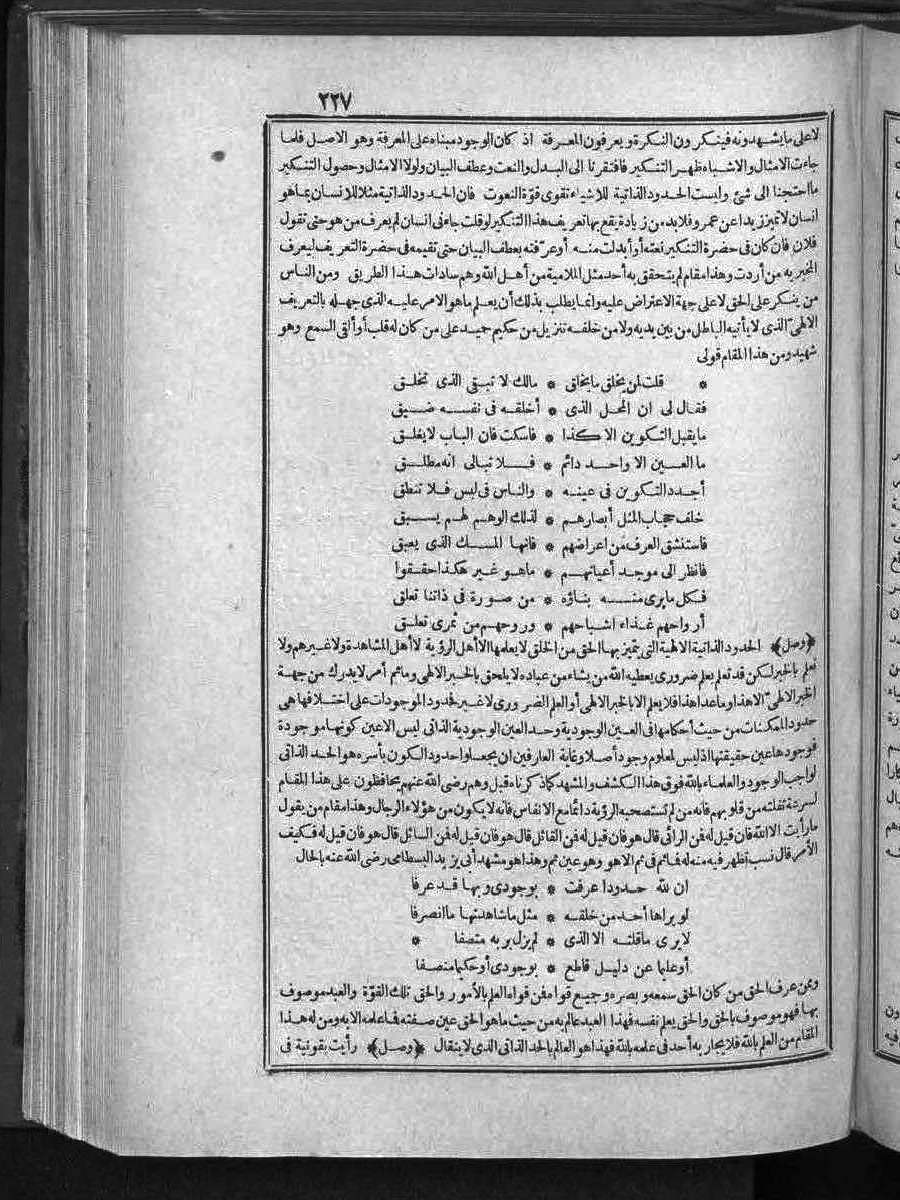 ٢٢٧
لاعلى ما يشهدونه فينكرون النكرة ويعرفون المعرفة اذ كان الوجود مبناه على المعرفة وهو الاصل فلما
جاءت الامثال والاشباه ظهر التنكير فافتقرنا الى البدل والنعت وعطف البيان ولولا الامثال وحصول التنكير
ما احتجنا الى شئ وليست الحدود الذاتية للاشياء تقوى قوة النعوت فان الحدود الذاتية مثلا للانسان بما هو
انسان لا تميز زيدا عن عمرو فلا بد من زيادة يقع بها تعريف هذا التنكير لو قلت جاءنى انسان لم يعرف من هو حتى تقول
فلان فان كان فى حضرة التنكير نعته أو أبدلت منه أو عرفته بعطف البيان حتى تقيمه فى حضرة التعريف ليعرف
المخبر به من أردت وهذا مقام لم يتحقق به أحد مثل الملامية من أهل الله وهم سادات هذا الطريق ومن الناس
من ينكر على الحق لا على جهة الاعتراض عليه وانما يطلب بذلك أن يعلم ما هو الامر عليه الذى جهله بالتعريف
الالهىّ الذى لا يأتيه الباطل من بين يديه ولا من خلفه تنزيل من حكيم حميد على من كان له قلب أو ألقى السمع وهو
شهيد ومن هذا المقام قولى
* قلت لمن يخلق ما يخلق * مالك لا تبقى الذى تخلق
فقال لى ان المحل الذى * أخلقه فى نفسه ضيق
ما يقبل التكوين الا كذا * فاسكت فان الباب لا يغلق
ما العين الا واحد دائم * فلا تبالى انه مطلق
أجدد التكوين فى عينه * والناس فى لبس فلا تنطق
خلف حجاب المثل أبصارهم * لذلك الوهم لهم يسبق
فاستنشق العرف من اعراضهم * فانها المسك الذى يعبق
فانظر الى موجد أعيانهم * ما هو غير هكذا حققوا
فكل ما يرى منه بناؤه * من صورة فى ذاتنا تعلق
أرواحهم غذاء اشباحهم * وروحهم من تعلق
﴿وصل﴾ الحدود الذاتية الالهية التى يتميز بها الحق من الخلق لا يعلمها الا أهل الرؤية لا أهل المشاهدة ولا غيرهم ولا
تعلم بالخبر لكن قد تعلم بعلم ضرورى يعطيه الله من يشاء من عباده لا يلحق بالخبر الالهى وما ثم أمر لا يدرك من جهة
الخبر الالهىّ الا هذا وما عدا هذا فلا يعلم الا بالخبر الالهى أو العلم الضرورى لا غير فحدود الموجودات على اختلافها هى
حدود الممكنات من حيث أحكامها فى العين الوجودية وحد العين الوجودية الذاتى ليس الاعين كونها موجودة
فوجودها عين حقيقتها اذ ليس لمعلوم وجود أصلا وغاية العارفين ان يجعلوا حدود الكون بأسره هو الحد الذاتى
لواجب الوجود والعلماء بالله فوق هذا الكشف والمشهد كما ذكرناه قبل وهم رضى الله عنهم يحافظون على هذا المقام
لسرعة تفلته من قلوبهم فانه من لم تستصحبه الرؤية دائما مع الانفاس فانه لا يكون من هؤلاء الرجال وهذا مقام من يقول
ما رأيت الا الله فان قيل له فمن الرائى قال هو فان قيل له فمن القائل قال هو فان قيل له فمن السائل قال هو فان قيل له فكيف
الأمر قال نسب تظهر فيه منه له فما ثم فى ثم الا هو وهو عين ثم وهذا هو مشهد أبى يزيد البسطامى رضى الله عنه بالحال
ان لله حدودا عرفت * بوجودى وبها قد عرفا
لو يراها أحد من خلقه * مثل ما شاهدتها ما انصرفا
لا يرى ما قلته الا الذى * لم يزل بربه متصفا *
أو عليما عن دليل قاطع * بوجودى أو حكيما منصفا
وممن عرف الحق من كان الحق سمعه وبصره وجميع قواه فمن قواه العلم بالأمور والحق تلك القوّة والعبد موصوف
بها فهو موصوف بالحق والحق يعلم نفسه فهذا العبد عالم به من حيث ما هو الحق عين صفته فما علمه الا به ومن له هذا
المقام من العلم بالله فلا يجاريه أحد فى علمه بالله فهذا هو العالم بالحد الذاتى الذى لا ينقال ﴿وصل﴾ رأيت بقونية فى